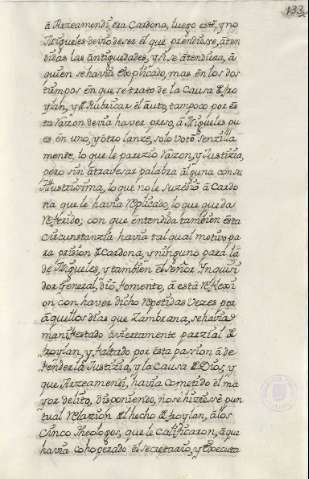 133
à Arzeamendi, era Cardona, luego este, y no
Migueles devio de ser el que prendiesse, aten
didas las antiguedades, y si se atendiera, à
quien se havia explicado, mas en los dos
tiempos en que se trato de la Causa de Fro
ylan, y de rubricar el auto, tampoco por es
ta razon devia haver preso, à Migueles pu
es en uno, y otro lanze, solo votò senzilla
mente, lo que le pareziò razon, y Justizia,
pero sin atravesar palabra alguna con su
Illustrissima, lo que no le suzediò à Cardo
na que le havia replicado, lo que queda
referido; con que entendida tambien esta
circunstanzia havia tal qual motivo pa
ra prision de Cardona, y ninguno para la
de Migueles, y tambien el señor Inquisi
dor General, dio fomento, à esta reflexi
on con haver dicho repetidas vezes por
aquellos dias que Zambrana, se havia
manifestado aviertamente parzial de
Froylan, y faltado por esta passion à de
fender la Justizia, y la causa de Dios; y
que Arzeamendi, havia cometido el ma
yor delito, disponiendo, no se hiziesse pun
tual relazion del hecho de Froylan, à los
Cinco Theologos, que le calificaron, à que
havia cohoperado el secretario, y